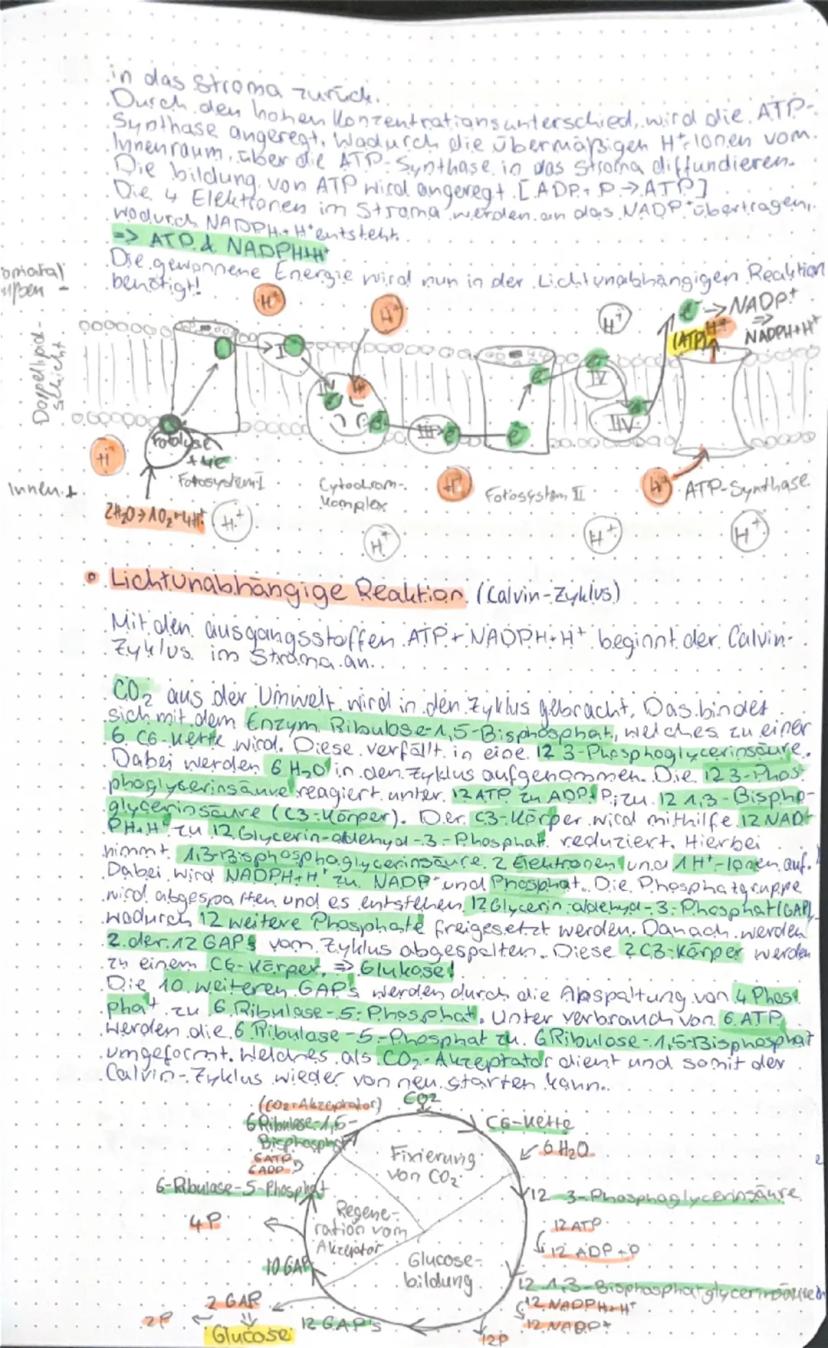 in das Stroma zurück.
Durch den hohen Konzentrationsunterschied, wird die ATP-
Synthase angeregt. Wodurch die übermäßigen H⁺-Ionen vom
Innenraum über die ATP-Synthase in das Stroma diffundieren.
Die bildung von ATP wird angeregt [ADP + P → ATP]
Die 4 Elektronen im Stroma werden an das NADP⁺ übertragen,
wodurch NADPH+H⁺ entsteht.
=> ATP & NADPH+H⁺
Die gewonnene Energie wird nun in der Lichtunabhängigen Reaktion
benötigt!
Doppellipid-
schicht
H⁺
H⁺
H⁺
e⁻ → NADP⁺
=>
NADPH+H⁺
(ATP)
H⁺
I
e⁻
III
e⁻
IV
Fotolyse
+4e⁻
H⁺
Innen +
Fotosystem I
Cytochrom-
komplex
H⁺
Fotosystem II
H⁺
ATP-Synthase
2H₂O→1O₂+4H⁺
H⁺
H⁺
H⁺
H⁺
• Lichtunabhängige Reaktion (Calvin-Zyklus)
Mit den ausgangsstoffen ATP + NADPH+H⁺ beginnt der Calvin-
Zyklus im Stroma an.
CO₂ aus der Umwelt wird in den Zyklus gebracht. Das bindet
sich mit dem Enzym Ribulose-1,5-Bisphosphat, welches zu einer
6 C6-Kette wird. Diese verfällt in eine 12 3-Phosphoglycerinsäure.
Dabei werden 6 H₂O in den Zyklus aufgenommen. Die 12 3-Phos-
phoglycerinsäure reagiert unter 12 ATP zu ADP+P; zu 12 1,3-Bispho-
glycerinsäure (C3-Körper). Der C3-Körper wird mithilfe 12 NAD
PH+H⁺ zu 12 Glycerin-aldehyd-3-Phosphat reduziert. Hierbei
nimmt 1,3-Bisphosphoglycerinsäure 2 Elektronen und 1 H⁺-Ionen auf.
Dabei wird NADPH+H⁺ zu NADP⁺ und Phosphat. Die Phosphatgruppe
wird abgespalten und es entstehen 12 Glycerin-aldehyd-3-Phosphat (GAP),
wodurch 12 weitere Phosphate freigesetzt werden. Danach werden
2 der 12 GAPs vom Zyklus abgespalten. Diese 2 C3-Körper werden
zu einem C6-Körper. => Glukose!
Die 10 weiteren GAP's werden durch die Abspaltung von 4 Phos
phat zu 6 Ribulose-5-Phosphat. Unter verbrauch von 6 ATP
werden die 6 Ribulose-5-Phosphat zu 6 Ribulose-1,5-Bisphosphat
umgeformt. Welches als CO₂-Akzeptator dient und somit der
Calvin-Zyklus wieder von neu starten kann.
(CO₂-Akzeptator)
CO2
6 Ribulose-1,5-
Bisphosphat
C6-Kette
6 H₂O
6 ATP
6 ADP
Fixierung
von CO₂
6-Ribulose-5-Phosphat
12 3-Phosphoglycerinsäure
4P
Regene-
ration vom
Akzeptor
12 ATP
12 ADP+P
10 GAP
Glucose-
bildung
12 1,3-Bisphosphatglycerinsäure
12 NADPH+H⁺
12 NADP⁺
2 GAP
2P
Glucose
12 GAP's
12P